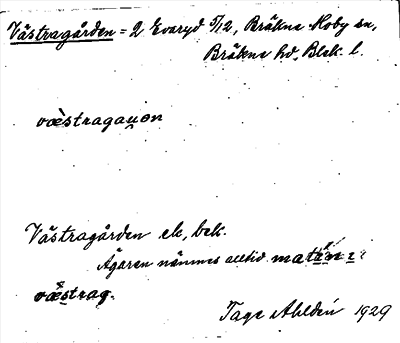 Västragården = 2 Evaryd 5/12, Bräkne Hoby sn,
Bräkne hd, Blek. l.
væ̀stragau̯ən
Västragården ek, bek.
Ägaren nämnes alltid
væ̀strag.
Tage Ahldén 1929